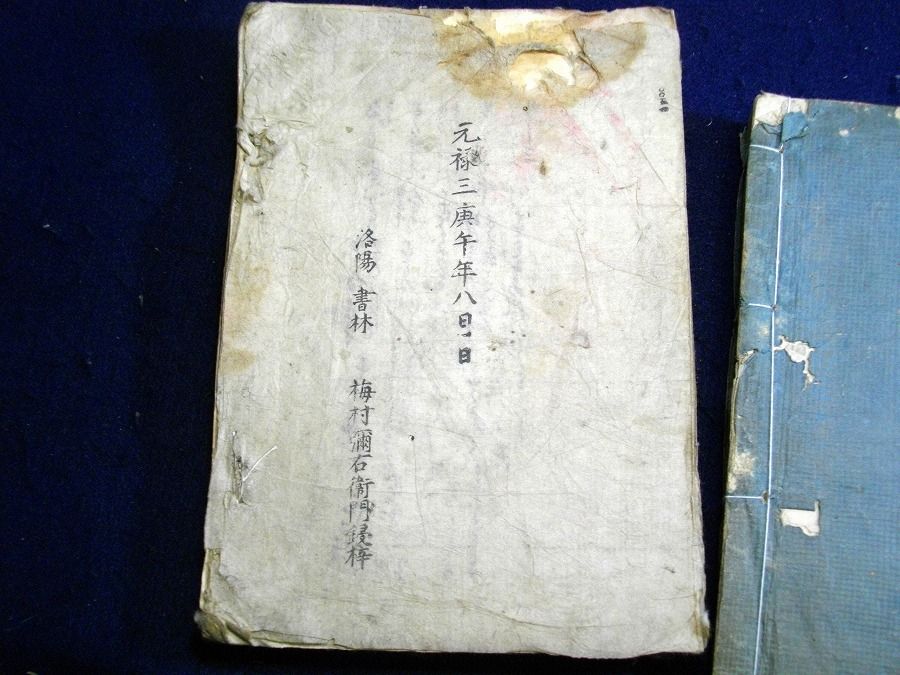 元禄三庚午年八日一日
洛陽 書林 梅村彌右衛門鋟梓